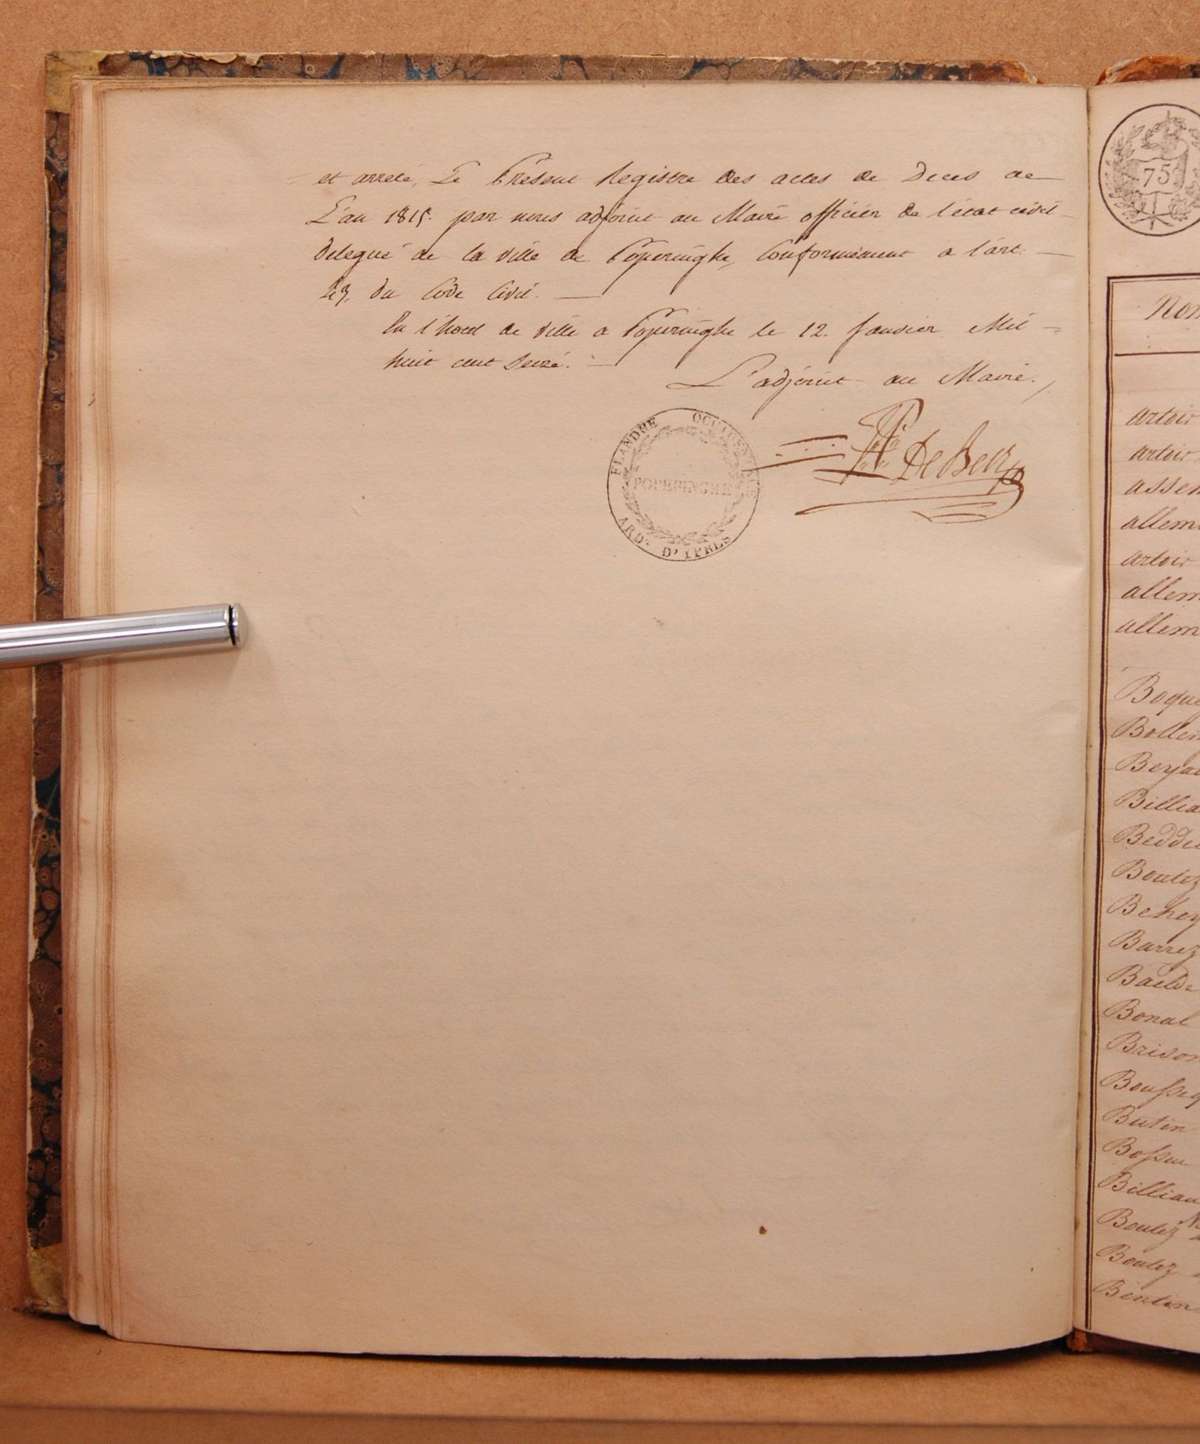 et arreté, Le Present Registre des actes de Deces de
L'an 1815. par nous adjoint au Maire officier de l'état civil
delegué de la ville de Poperinghe, Conformement a l'art.
43, du Code Civil.
En l'hotel de ville a Poperinghe le 12. Janvier Mil
huit cent Seize.
L'adjoint au Maire,
De Beir
FLANDRE OCCIDENTALE
POPERINGHE
ARD. D'YPRES
75
Nom
artoir
artoir
assem
allem
artoir
allem
allem
Boque
Bollen
Billia
Beddel
Boutez
Behey
Barrez
Baelde
Bonal
Brison
Bousseq
Butin
Bossu
Billiau
Boutez
Boutez
Bentin